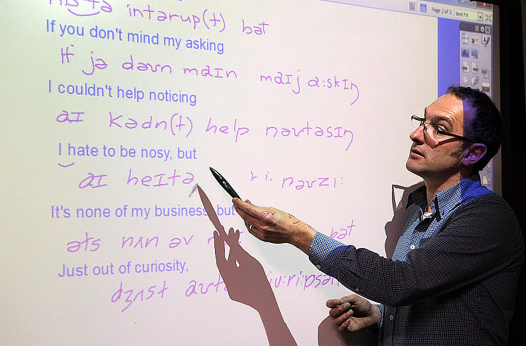 Page 2 of 3
ɪntərʌp(t) bət
If you don't mind my asking
ɪf jə dəʊn maɪn maɪj ɑ:skɪŋ
I couldn't help noticing
aɪ kədn(t) help nəʊtəsɪŋ
I hate to be nosy, but
aɪ heɪtə nəʊzi:
It's none of my business, but
əts nʌn əv bət
Just out of curiosity,
dʒʌst